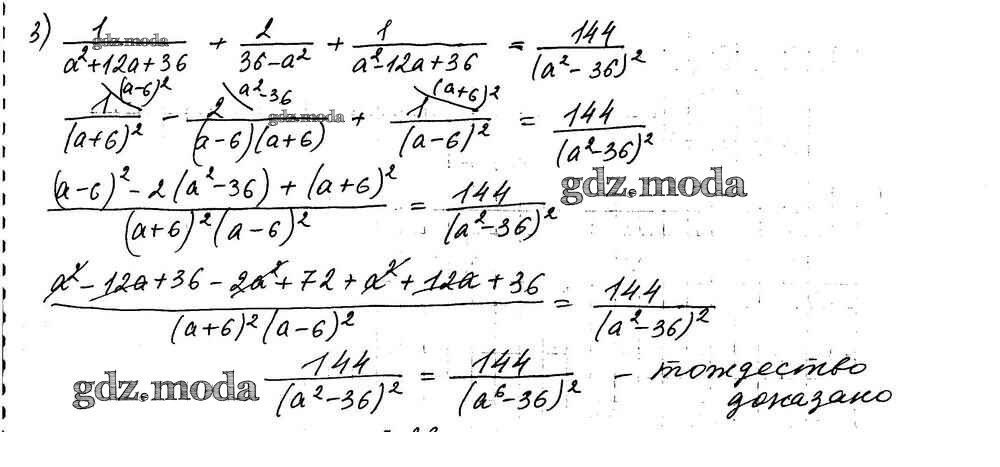 3) 1/(a²+12a+36) + 2/(36-a²) + 1/(a²-12a+36) = 144/(a²-36)²
gdz.moda
(a-6)² a²-36 (a+6)²
1/(a+6)² - 2/((a-6)(a+6)) + 1/(a-6)² = 144/(a²-36)²
gdz.moda
((a-6)² - 2(a²-36) + (a+6)²)/((a+6)²(a-6)²) = 144/(a²-36)²
gdz.moda
(a² - 12a + 36 - 2a² + 72 + a² + 12a + 36)/((a+6)²(a-6)²) = 144/(a²-36)²
gdz.moda
144/(a²-36)² = 144/(a⁶-36)² - тождество
доказано